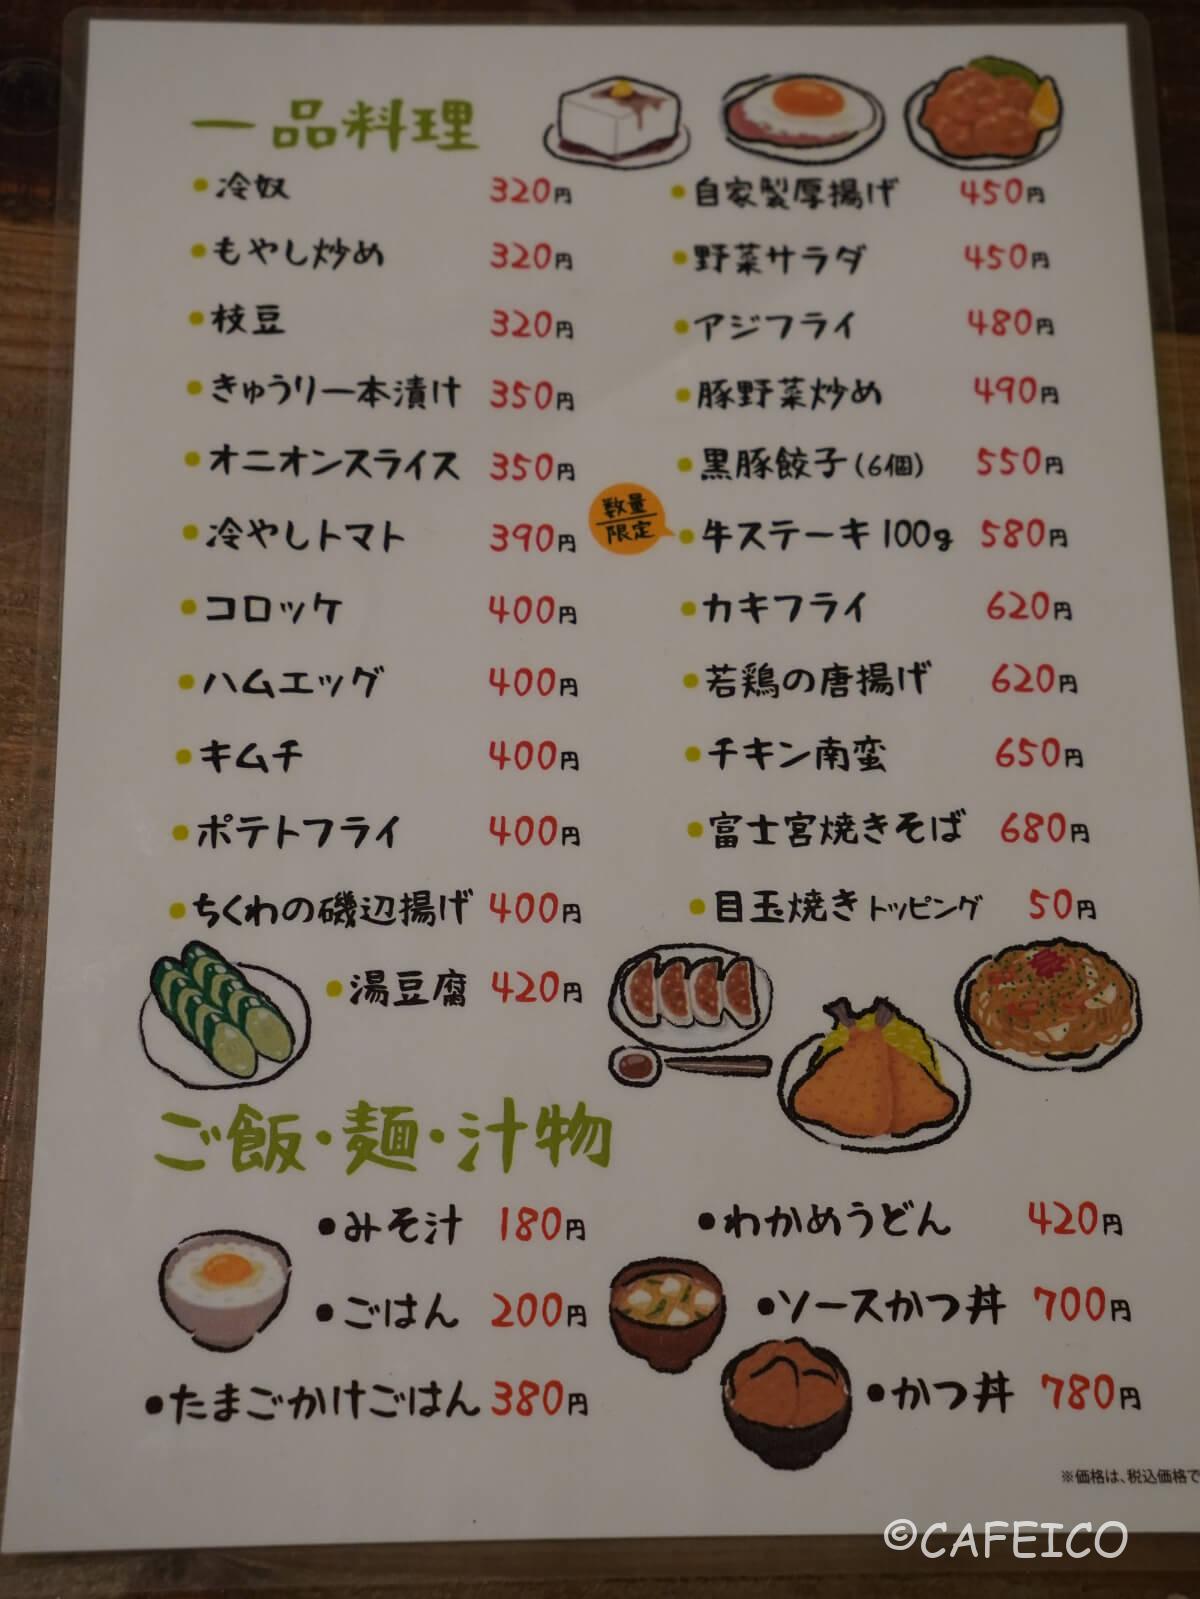 一品料理
・冷奴 320円
・もやし炒め 320円
・枝豆 320円
・きゅうり一本漬け 350円
・オニオンスライス 350円
・冷やしトマト 390円
・コロッケ 400円
・ハムエッグ 400円
・キムチ 400円
・ポテトフライ 400円
・ちくわの磯辺揚げ 400円
・湯豆腐 420円
・自家製厚揚げ 450円
・野菜サラダ 450円
・アジフライ 480円
・豚野菜炒め 490円
・黒豚餃子(6個) 550円
数量
限定
・牛ステーキ100g 580円
・カキフライ 620円
・若鶏の唐揚げ 620円
・チキン南蛮 650円
・富士宮焼きそば 680円
・目玉焼きトッピング 50円
ご飯・麺・汁物
・みそ汁 180円
・ごはん 200円
・たまごかけごはん 380円
・わかめうどん 420円
・ソースかつ丼 700円
・かつ丼 780円
※価格は、税込価格で
©CAFEICO